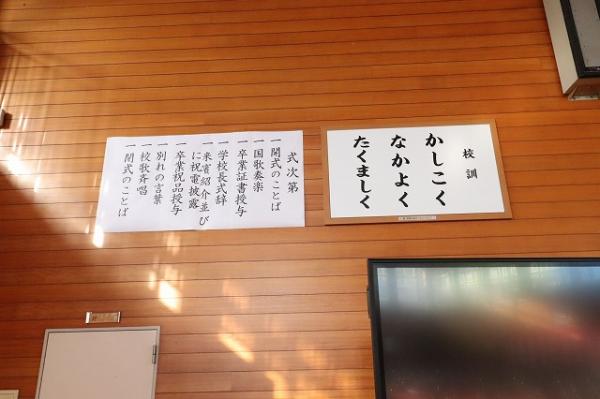 校訓
かしこく
なかよく
たくましく
式次第
一開式のことば
一国歌奏楽
一卒業証書授与
一学校長式辞
一来賓紹介並び
に祝電披露
一卒業祝品授与
一別れの言葉
一校歌斉唱
一閉式のことば